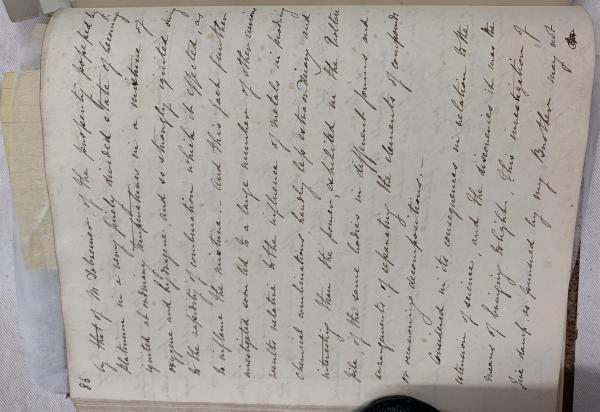 86
by that of M. Döbreiner of the property possessed by
platinum in a very finely divided state of becoming
ignited at ordinary temperatures in a mixture of
oxygene and hydrogene, and so strongly ignited owing
to the rapidity of combination which it effected, as
to inflame the mixture. – And this fact further
investigated soon led to a large number of other curious
results relative to the influence of metals in producing
chemical combinations hardly less extraordinary and
interesting than the power, exhibited in the Voltaic
pile, of the same bodies in different forms and
arrangements of separating the elements of compounds
or occasioning decompositions. –
Considered in its consequences in relation to the
extension of science, and the discoveries it was the
means of bringing to light, this investigation of
fire damp, as pursued by my Brother may not